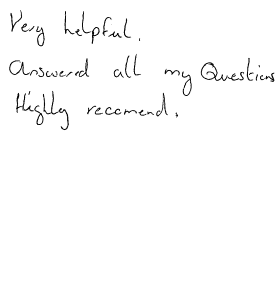 Very helpful.
Answered all my Questions
Highly recomend.